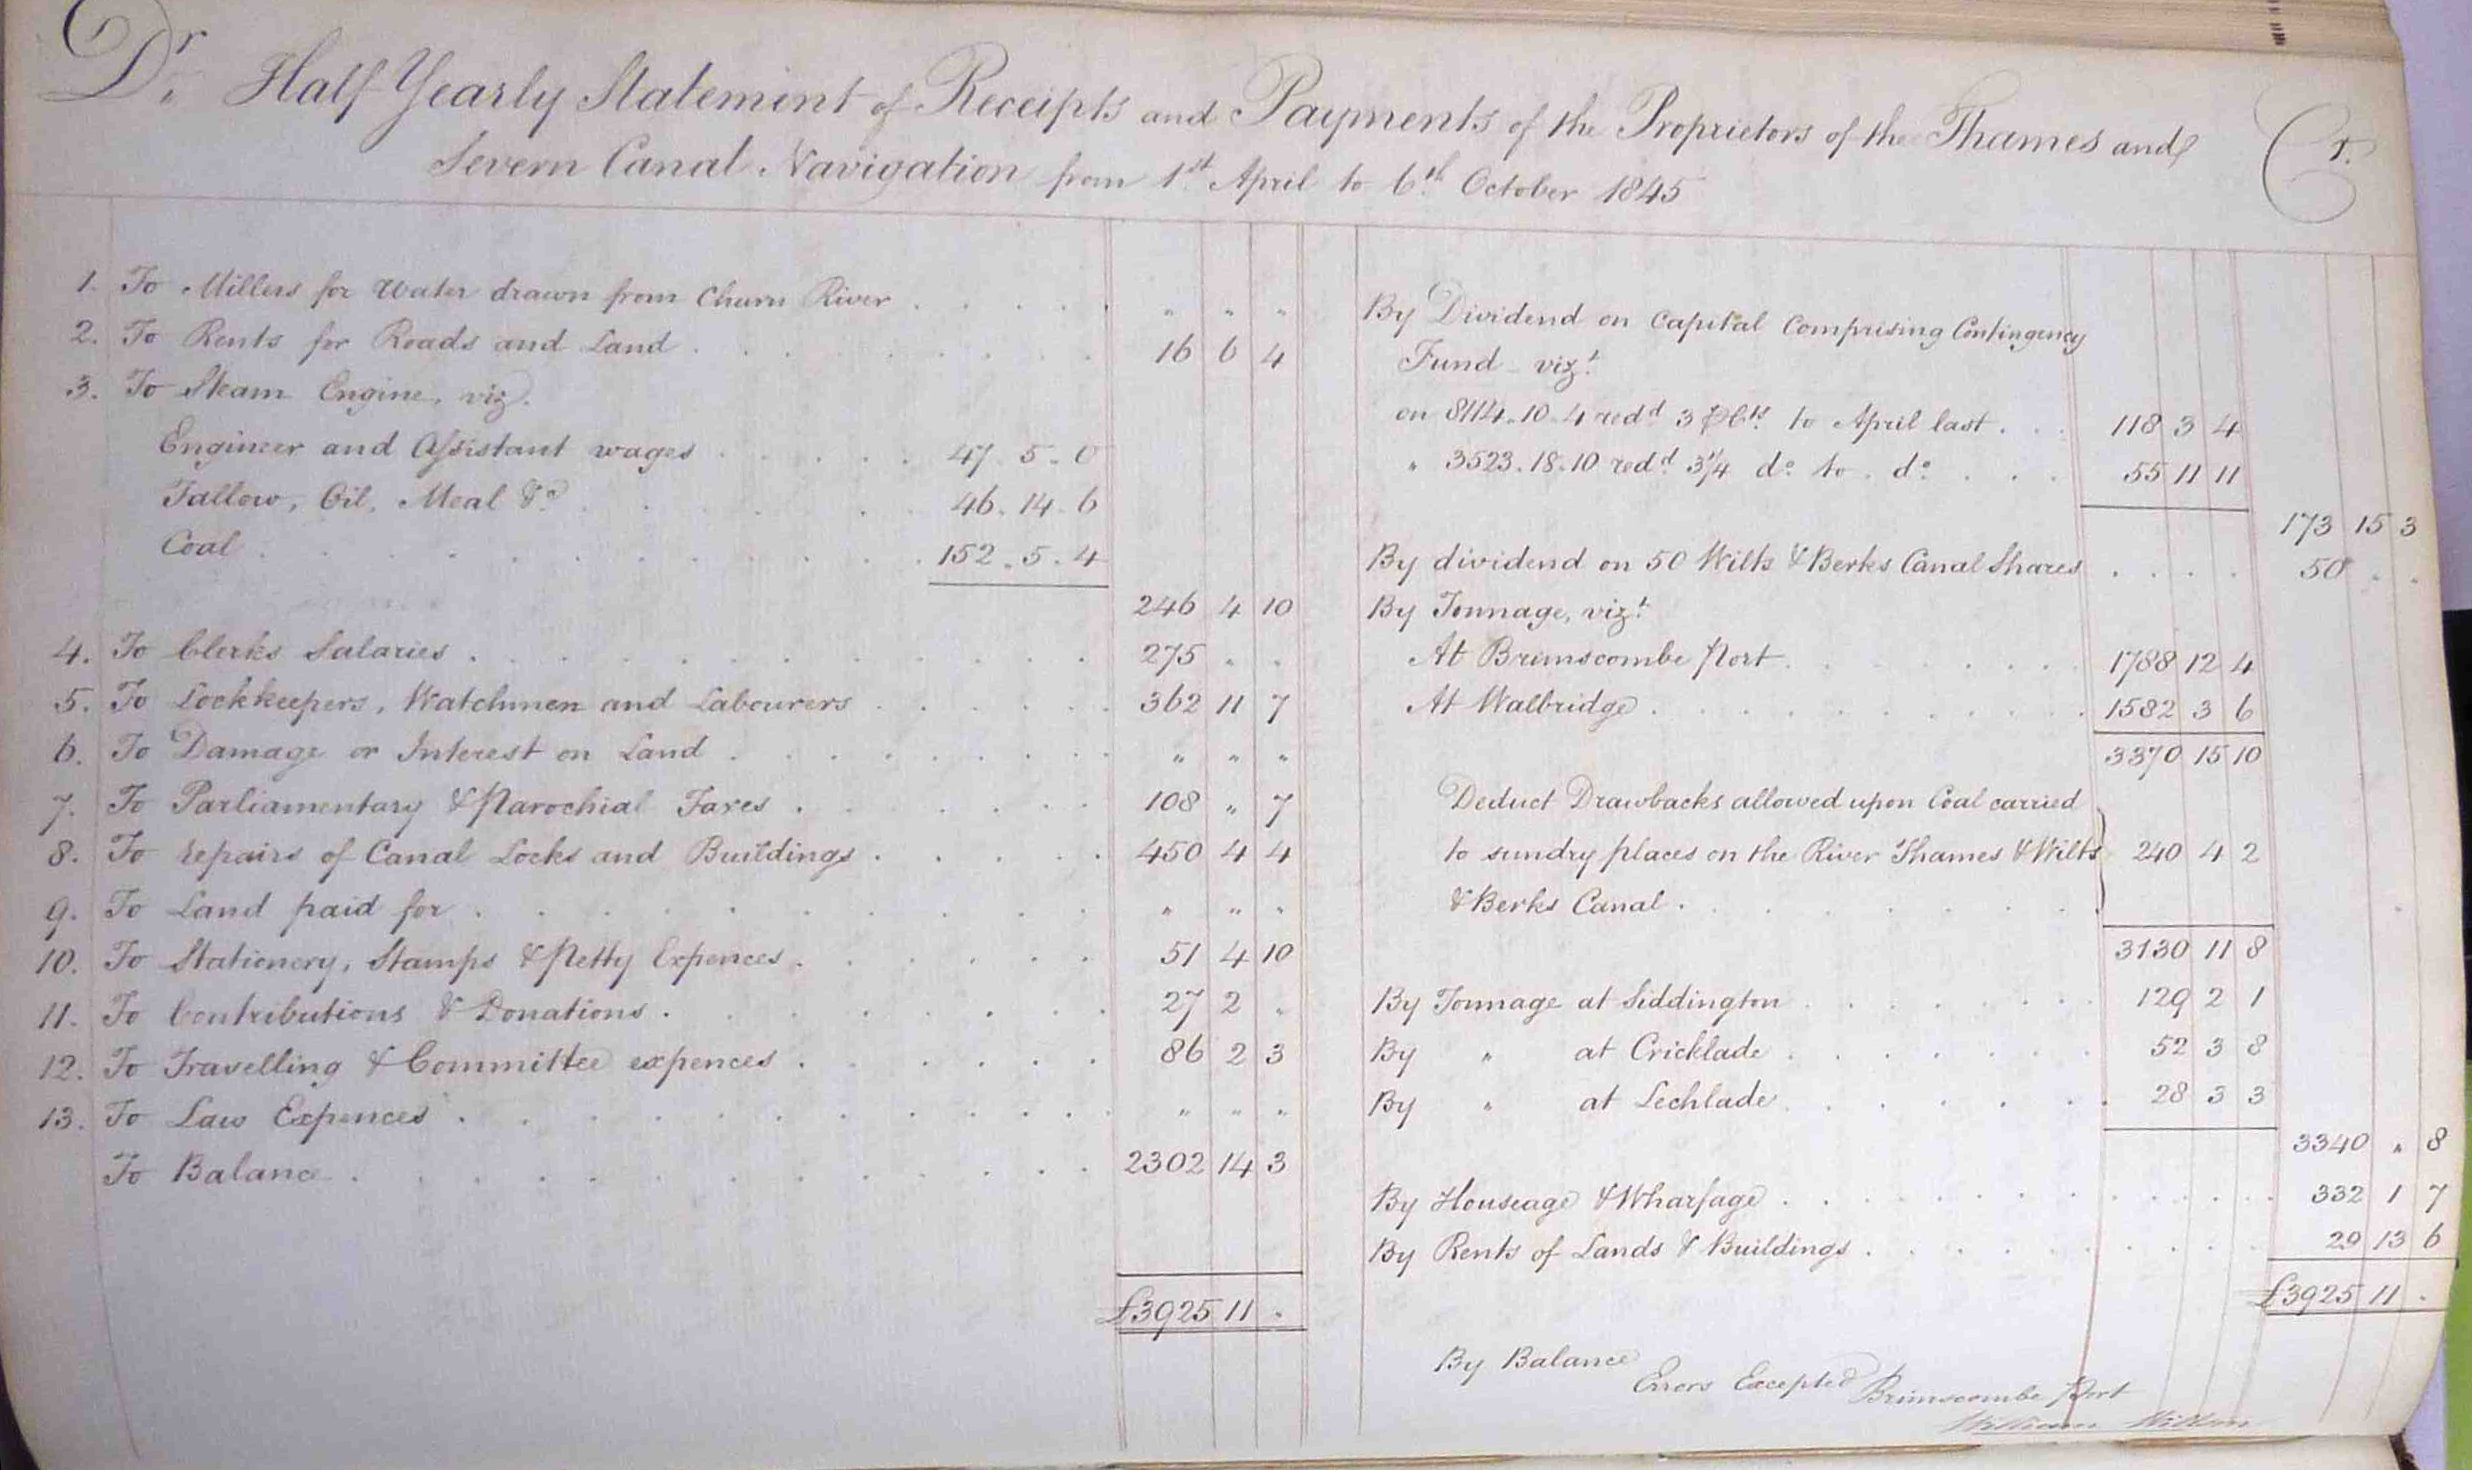 Dr. Half Yearly Statement of Receipts and Payments of the Proprietors of the Thames and Cr.
Severn Canal Navigation from 1st April to 6th October 1845
1. To Millers for Water drawn from Churn River . . . . . " " "
2. To Rents for Roads and Land . . . . . . . . 16 6 4
3. To Steam Engine, viz.
Engineer and Assistant wages . . . . . 47. 5. 0
Tallow, Oil, Meal &c . . . . . 46. 14. 6
Coal . . . . . . . . . . . 152. 5. 4
246 4 10
4. To Clerks Salaries . . . . . . . . . . . 275 " "
5. To Lockkeepers, Watchmen and Labourers . . . . . 362 11 7
6. To Damage or Interest on Land . . . . . . . . " " "
7. To Parliamentary & Parochial Taxes . . . . . . 108 " 7
8. To repairs of Canal Locks and Buildings . . . . . 450 4 4
9. To Land paid for . . . . . . . . . . " " "
10. To Stationery, Stamps & Petty Expences . . . . . . 51 4 10
11. To Contributions & Donations . . . . . . . . 27 2 "
12. To Travelling & Committee expences . . . . . . 86 2 3
13. To Law Expences . . . . . . . . . . . " " "
To Balance . . . . . . . . . . . . 2302 14 3
£3925 11 .
By Dividend on Capital Comprising Contingency
Fund vizt.
on 8114.10.4 redd 3 ⅌Cts. to April last . . . 118 3 4
" 3523.18.10 redd. 3¼ do. to. do. . . . 55 11 11
173 15 3
By dividend on 50 Wilts & Berks Canal Shares . . . . 50 . .
By Tonnage, vizt.
At Brimscombe Port . . . . . . . . 1788 12 4
At Walbridge . . . . . . . . . . . 1582 3 6
3370 15 10
Deduct Drawbacks allowed upon Coal carried
to sundry places on the River Thames & Wilts 240 4 2
& Berks Canal . . . . . . . .
3130 11 8
By Tonnage at Siddington . . . . . . . . 129 2 1
By " at Cricklade . . . . . . . 52 3 8
By " at Lechlade . . . . . . . 28 3 3
3340 " 8
By Houseage & Wharfage . . . . . . . . . . . . 332 1 7
By Rents of Lands & Buildings . . . . . . . . . 29 13 6
£3925 11 .
By Balance
Errors Excepted Brimscombe Port
William